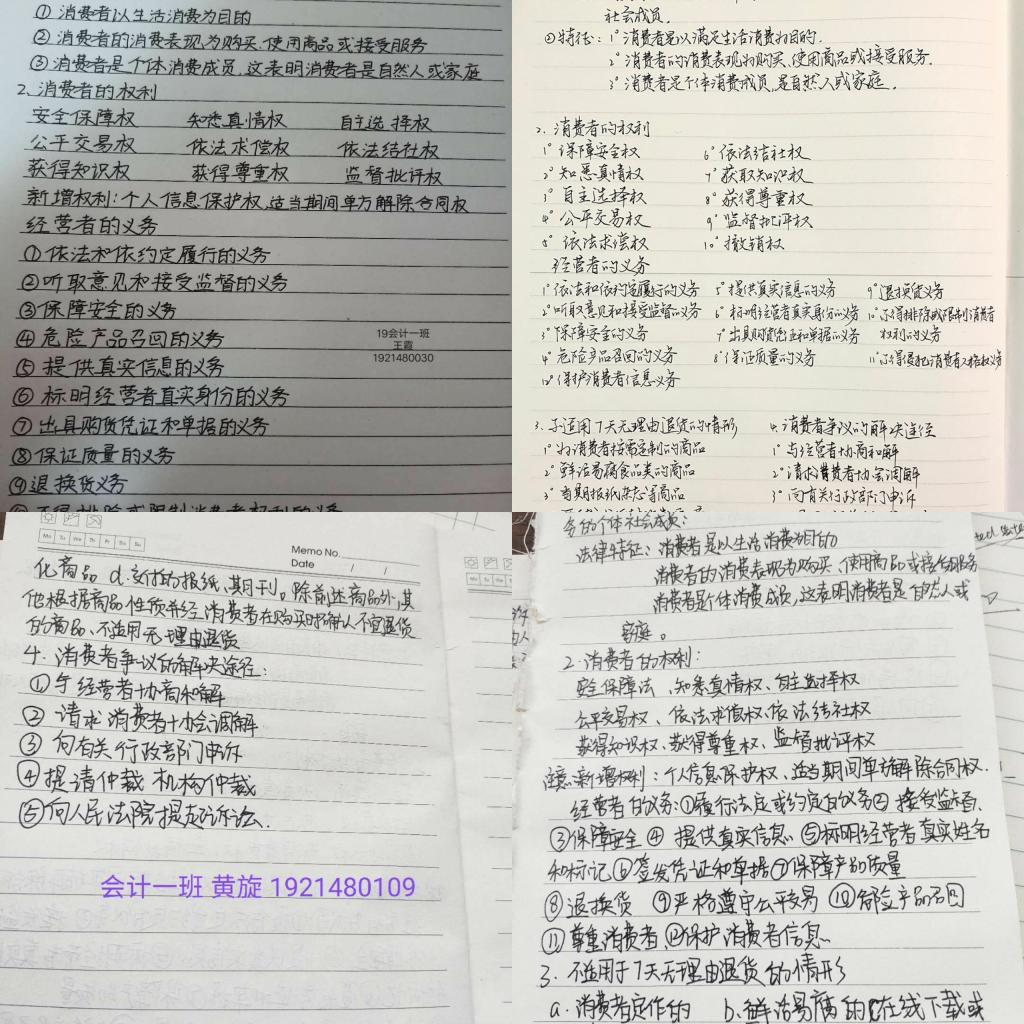 ① 消费者以生活消费为目的
② 消费者的消费表现为购买、使用商品或接受服务
③ 消费者是个体消费成员,这表明消费者是自然人或家庭
2、消费者的权利
安全保障权 知悉真情权 自主选择权
公平交易权 依法求偿权 依法结社权
获得知识权 获得尊重权 监督批评权
新增权利:个人信息保护权、适当期间单方解除合同权
经营者的义务
① 依法和依约定履行的义务
② 听取意见和接受监督的义务
③ 保障安全的义务
④ 危险产品召回的义务
⑤ 提供真实信息的义务
⑥ 标明经营者真实身份的义务
⑦ 出具购货凭证和单据的义务
⑧ 保证质量的义务
⑨ 退换货义务
19会计一班
王霞
1921480030
社会成员.
②特征: 1° 消费者是以满足生活消费为目的.
2° 消费者的消费表现为购买、使用商品或接受服务.
3° 消费者是个体消费成员,是自然人或家庭.
2. 消费者的权利
1° 保障安全权 6° 依法结社权
2° 知悉真情权 7° 获取知识权
3° 自主选择权 8° 获得尊重权
4° 公平交易权 9° 监督批评权
5° 依法求偿权 10° 撤销权
经营者的义务
1° 依法和依约定履行的义务 5° 提供真实信息的义务 9° 退换货义务
2° 听取意见和接受监督的义务 6° 标明经营者真实身份的义务 10° 不得排除或限制消费者
3° 保障安全的义务 7° 出具购货凭证和单据的义务 权利的义务
4° 危险产品召回的义务 8° 保证质量的义务 11° 不得侵犯消费者人格权义务
12° 保护消费者信息义务
3. 不适用7天无理由退货的情形 4. 消费者争议的解决途径
1° 为消费者按需定制的商品 1° 与经营者协商和解
2° 鲜活易腐食品类的商品 2° 请求消费者协会调解
3° 当期报纸杂志等商品 3° 向有关行政部门申诉
Memo No.
Date / /
Mo Tu We Th Fr Sa Su
化商品 d.交付的报纸、期刊。除前述商品外,其
他根据商品性质并经消费者在购买时确认不宜退货
的商品、不适用无理由退货
4. 消费者争议的解决途径:
① 与经营者协商和解
② 请求消费者协会调解
③ 向有关行政部门申诉
④ 提请仲裁机构仲裁
⑤ 向人民法院提起诉讼.
会计一班 黄旋 1921480109
务的个体社会成员:
法律特征: 消费者是以生活消费为目的
消费者的消费表现为购买、使用商品或接受服务
消费者是个体消费成员,这表明消费者是自然人或
家庭。
2. 消费者的权利:
安全保障法、知悉真情权、自主选择权
公平交易权、依法求偿权、依法结社权
获得知识权、获得尊重权、监督批评权
注意:新增权利:个人信息保护权、适当期间单方解除合同权.
经营者的义务:①履行法定或约定的义务② 接受监督.
③保障安全④ 提供真实信息 ⑤标明经营者真实姓名
和标记⑥签发凭证和单据⑦保障产品质量
⑧ 退换货 ⑨严格遵守公平交易 ⑩危险产品召回
⑪ 尊重消费者 ⑫保护消费者信息
3. 不适用于7天无理由退货的情形
a. 消费者定作的 b.鲜活易腐的 C在线下载或